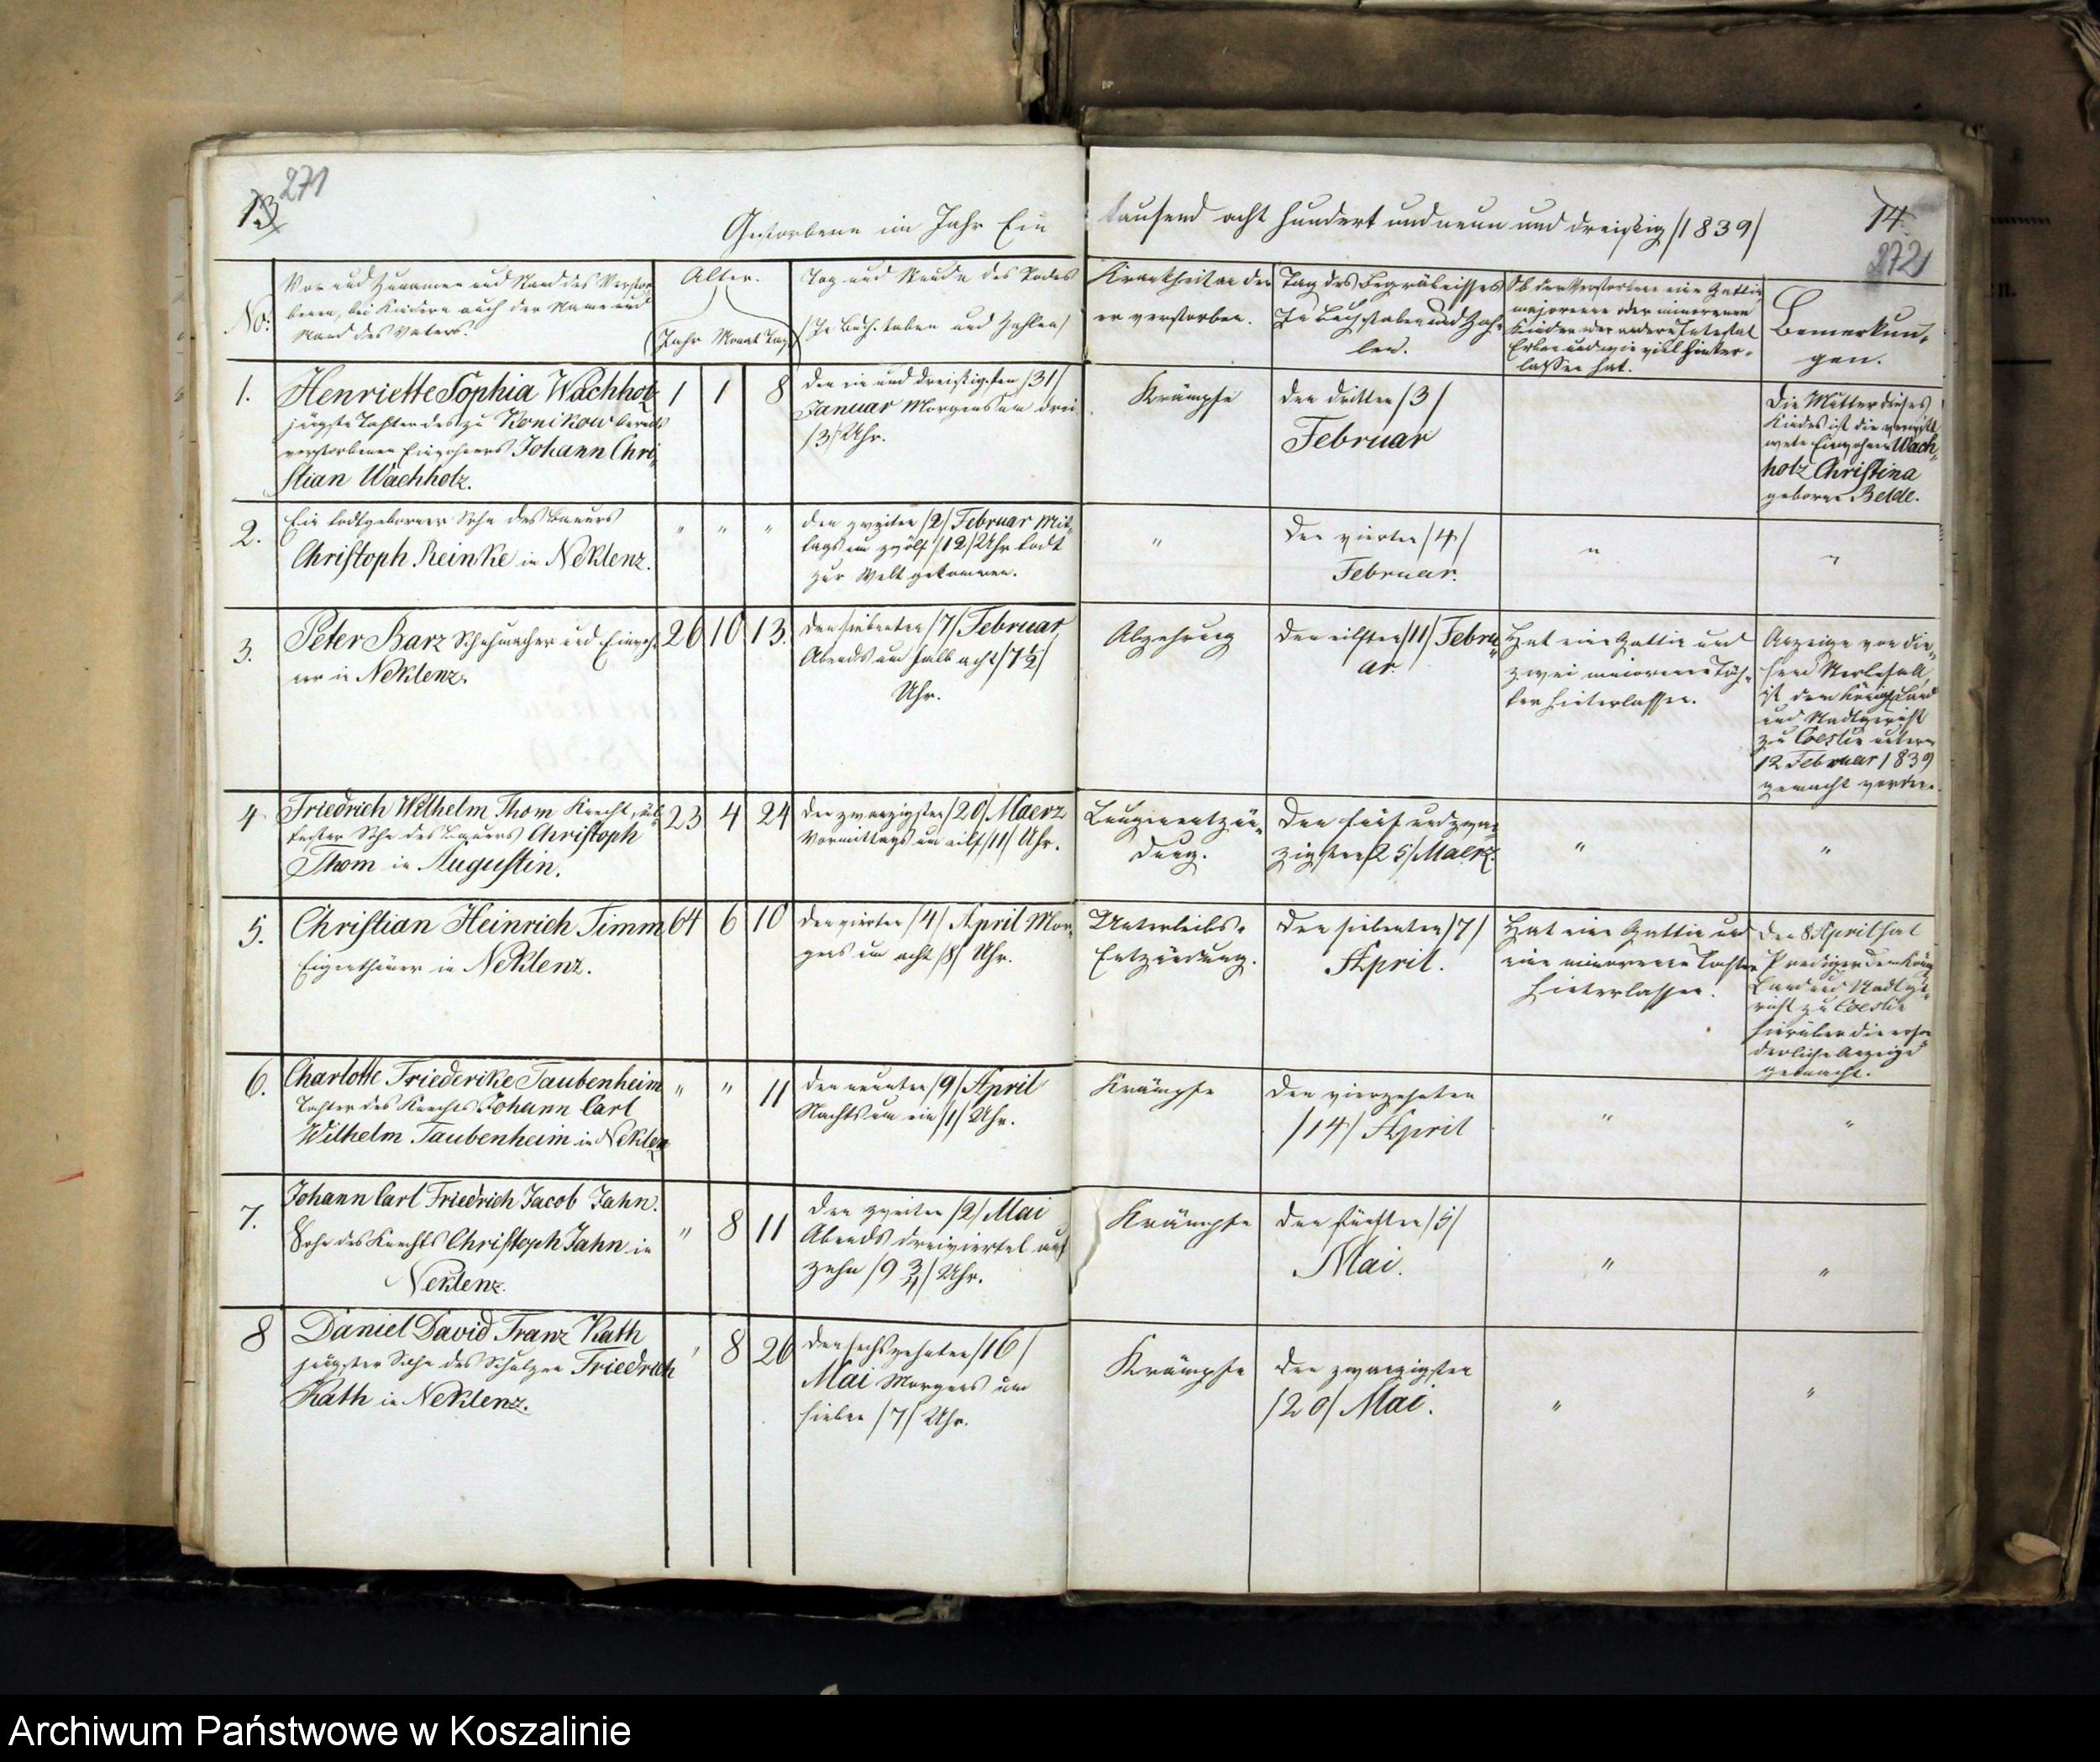 13
271
Gestorbene im Jahr Ein
tausend acht hundert und neun und dreißig /1839/
14
272
No:
Vor und Zunamen und Stand des Verstor
benen, bei Kindern auch der Name und
Stand des Vaters.
Alter.
Jahr Monat Tag
Tag und Stunde des Todes
/In Buchstaben und Zahlen/
Krankheit an der
er verstorben.
Tag des Begräbnisses
In Buchstaben und Zah-
len.
Ob der Verstorbene eine Gattin
majorenne oder minorenne
Kinder oder andere Intestat
Erben und wie viel hinter-
lassen hat.
Bemerkun-
gen.
1.
Henriette Sophia Wachholz
jüngste Tochter des zu Konikow bereits
verstorbenen Einwohners Johann Chri-
stian Wachholz.
1 1 8
den ein und dreißigsten /31/
Januar Morgens um drei
/3/ Uhr.
Krämpfe
den dritten /3/
Februar
Die Mutter dieses
Kindes ist die verwitt
wete Einwohner Wach-
holz Christina
geborne Belde.
2.
Ein todtgeborner Sohn des Bauers
Christoph Reinke in Neklenz.
" " "
den zweiten /2/ Februar Mit-
tags um zwölf /12/ Uhr todt
zur Welt gekommen.
"
den vierten /4/
Februar.
"
"
3.
Peter Barz Schuhmacher und Einwoh-
ner in Neklenz.
26 10 13.
den siebenten /7/ Februar
Abends um halb acht /7½/
Uhr.
Abzehrung
den eilften /11/ Febru-
ar.
Hat eine Gattin und
zwei minorenne Töch-
ter hinterlassen.
Anzeige von die-
sem Sterbefall
ist dem Königl Land
und Stadtgericht
zu Coeslin unterm
12 Februar 1839
gemacht worden.
4
Friedrich Wilhelm Thom Knecht, äl-
tester Sohn des Bauers Christoph
Thom in Augustin.
23 4 24
den zwanzigsten /20/ Maerz
Vormittags um eilf /11/ Uhr.
Lungenentzün-
dung.
den fünf und zwan
zigsten /25/ Maerz.
"
"
5.
Christian Heinrich Timm
Eigenthümer in Neklenz.
64 6 10
den vierten /4/ April Mor-
gens um acht /8/ Uhr.
Unterleibs-
Entzündung.
den siebenten /7/
April.
Hat eine Gattin und
eine minorenne Tochter
hinterlassen.
Den 8 April hat
Prediger dem König
Land und Stadtge-
richt zu Coeslin
hierüber die erfor
derliche Anzeige
gemacht.
6.
Charlotte Friederike Taubenheim
Tochter des Knechts Johann Carl
Wilhelm Taubenheim in Neklenz
" " 11
den neunten /9/ April
Nachts um ein /1/ Uhr.
Krämpfe
den vierzehnten
/14/ April
"
"
7.
Johann Carl Friedrich Jacob Jahn.
Sohn des Knechts Christoph Jahn in
Neklenz.
" 8 11
den zweiten /2/ Mai
Abends dreiviertel auf
zehn /9¾/ Uhr.
Krämpfe
den fünften /5/
Mai.
"
"
8
Daniel David Franz Kath
jüngster Sohn des Schulzen Friedrich
Kath in Neklenz.
" 8 26
den sechszehnten /16/
Mai Morgens um
sieben /7/ Uhr.
Krämpfe
den zwanzigsten
/20/ Mai.
"
"
Archiwum Państwowe w Koszalinie